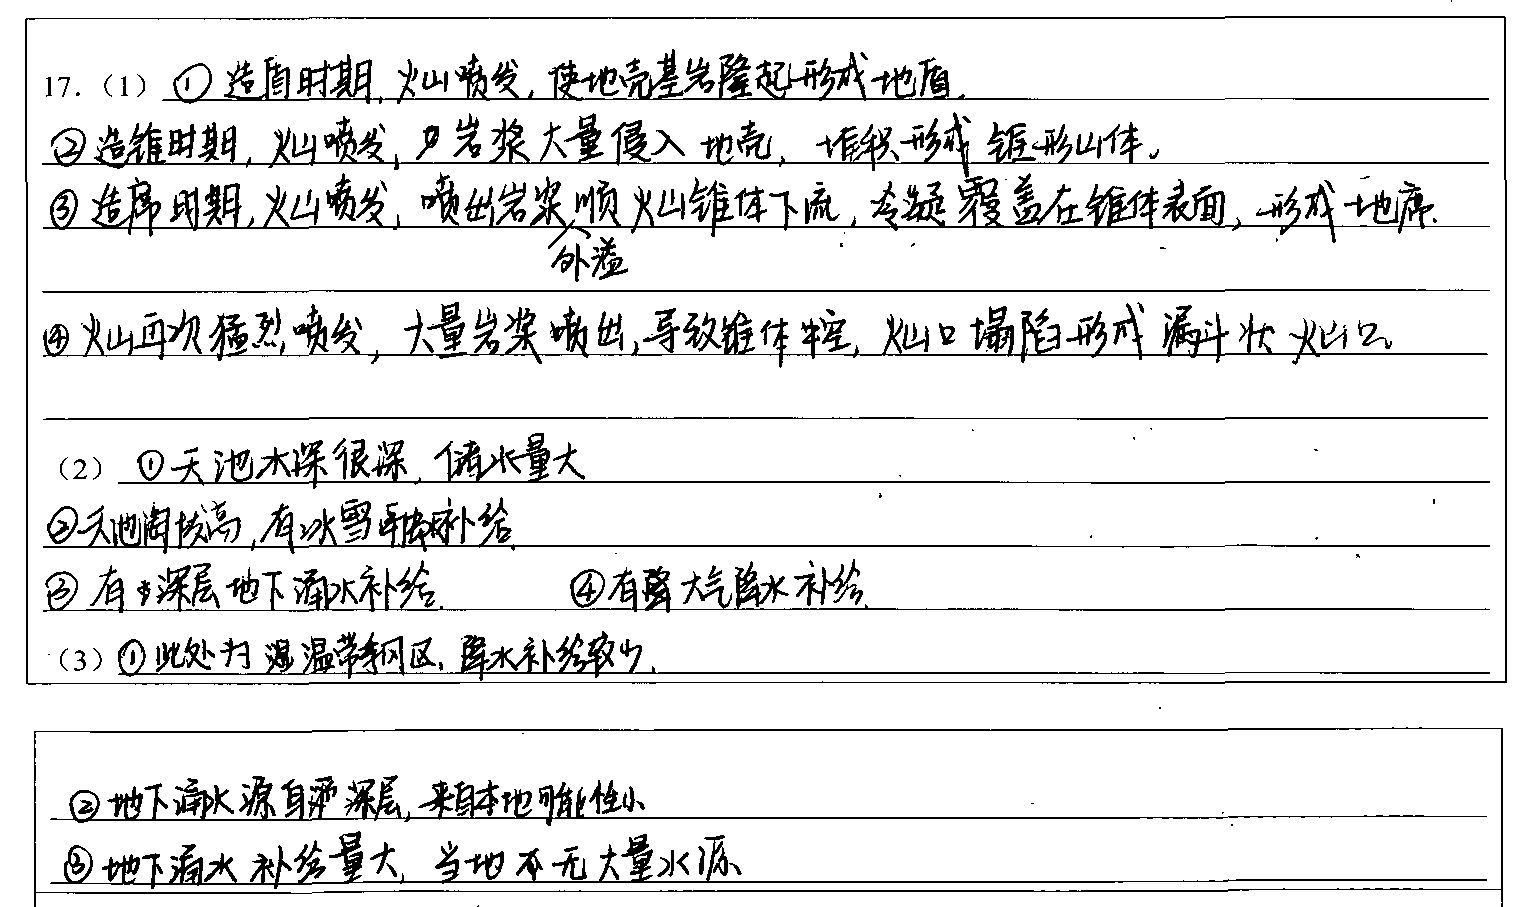 17.（1）①造盾时期,火山喷发,使地壳基岩隆起形成地盾.
②造锥时期,火山喷发,岩浆大量侵入地壳,堆积形成锥形山体。
③造席时期,火山喷发,喷出岩浆外溢顺火山锥体下流,冷凝覆盖在锥体表面,形成地席.
④火山再次猛烈喷发,大量岩浆喷出,导致锥体中空,火山口塌陷形成漏斗状火山口
（2）①天池水深很深,储水量大
②天池海拔高,有冰雪融水补给
③有深层地下涌水补给 ④有大气降水补给
（3）①此处为温带季风区,降水补给较少.
②地下涌水源自深层,来自本地可能性小
③地下涌水补给量大,当地无大量水源